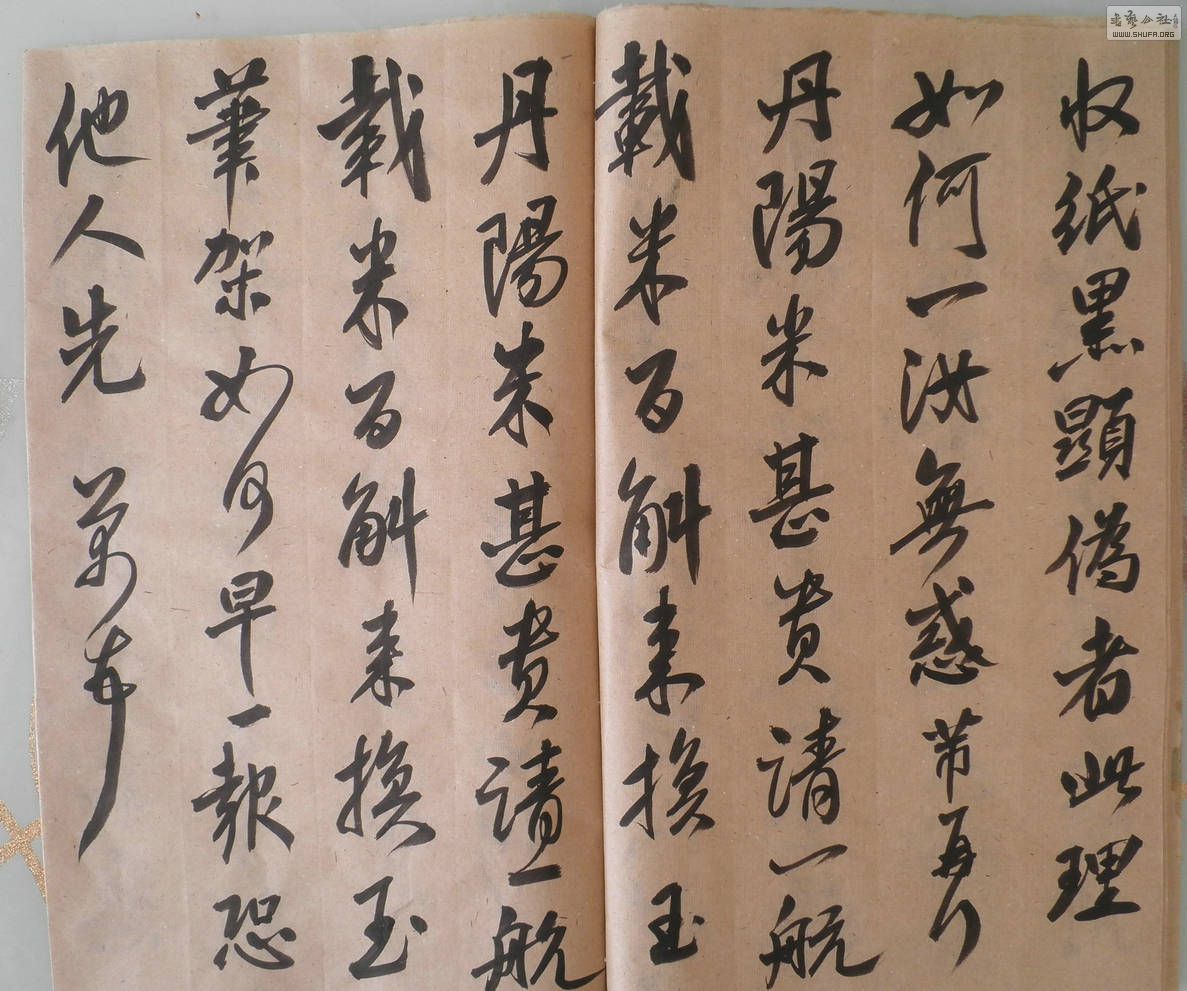 收紙黑顯偽者此理
如何一無惑芾再
丹陽米甚貴請一航
載米百斛來換玉
丹陽米甚貴請一航
載米百斛來換玉
筆架如何早一報恐
他人先
書藝公社
WWW.SHUFA.ORG